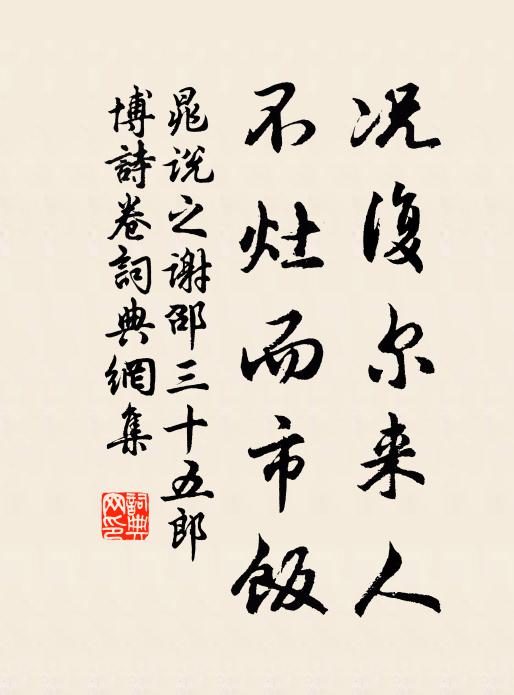 况復尔来人
不灶而市飯
晁说之谢邵三十五郎
博詩卷詞典網集
詞典网印